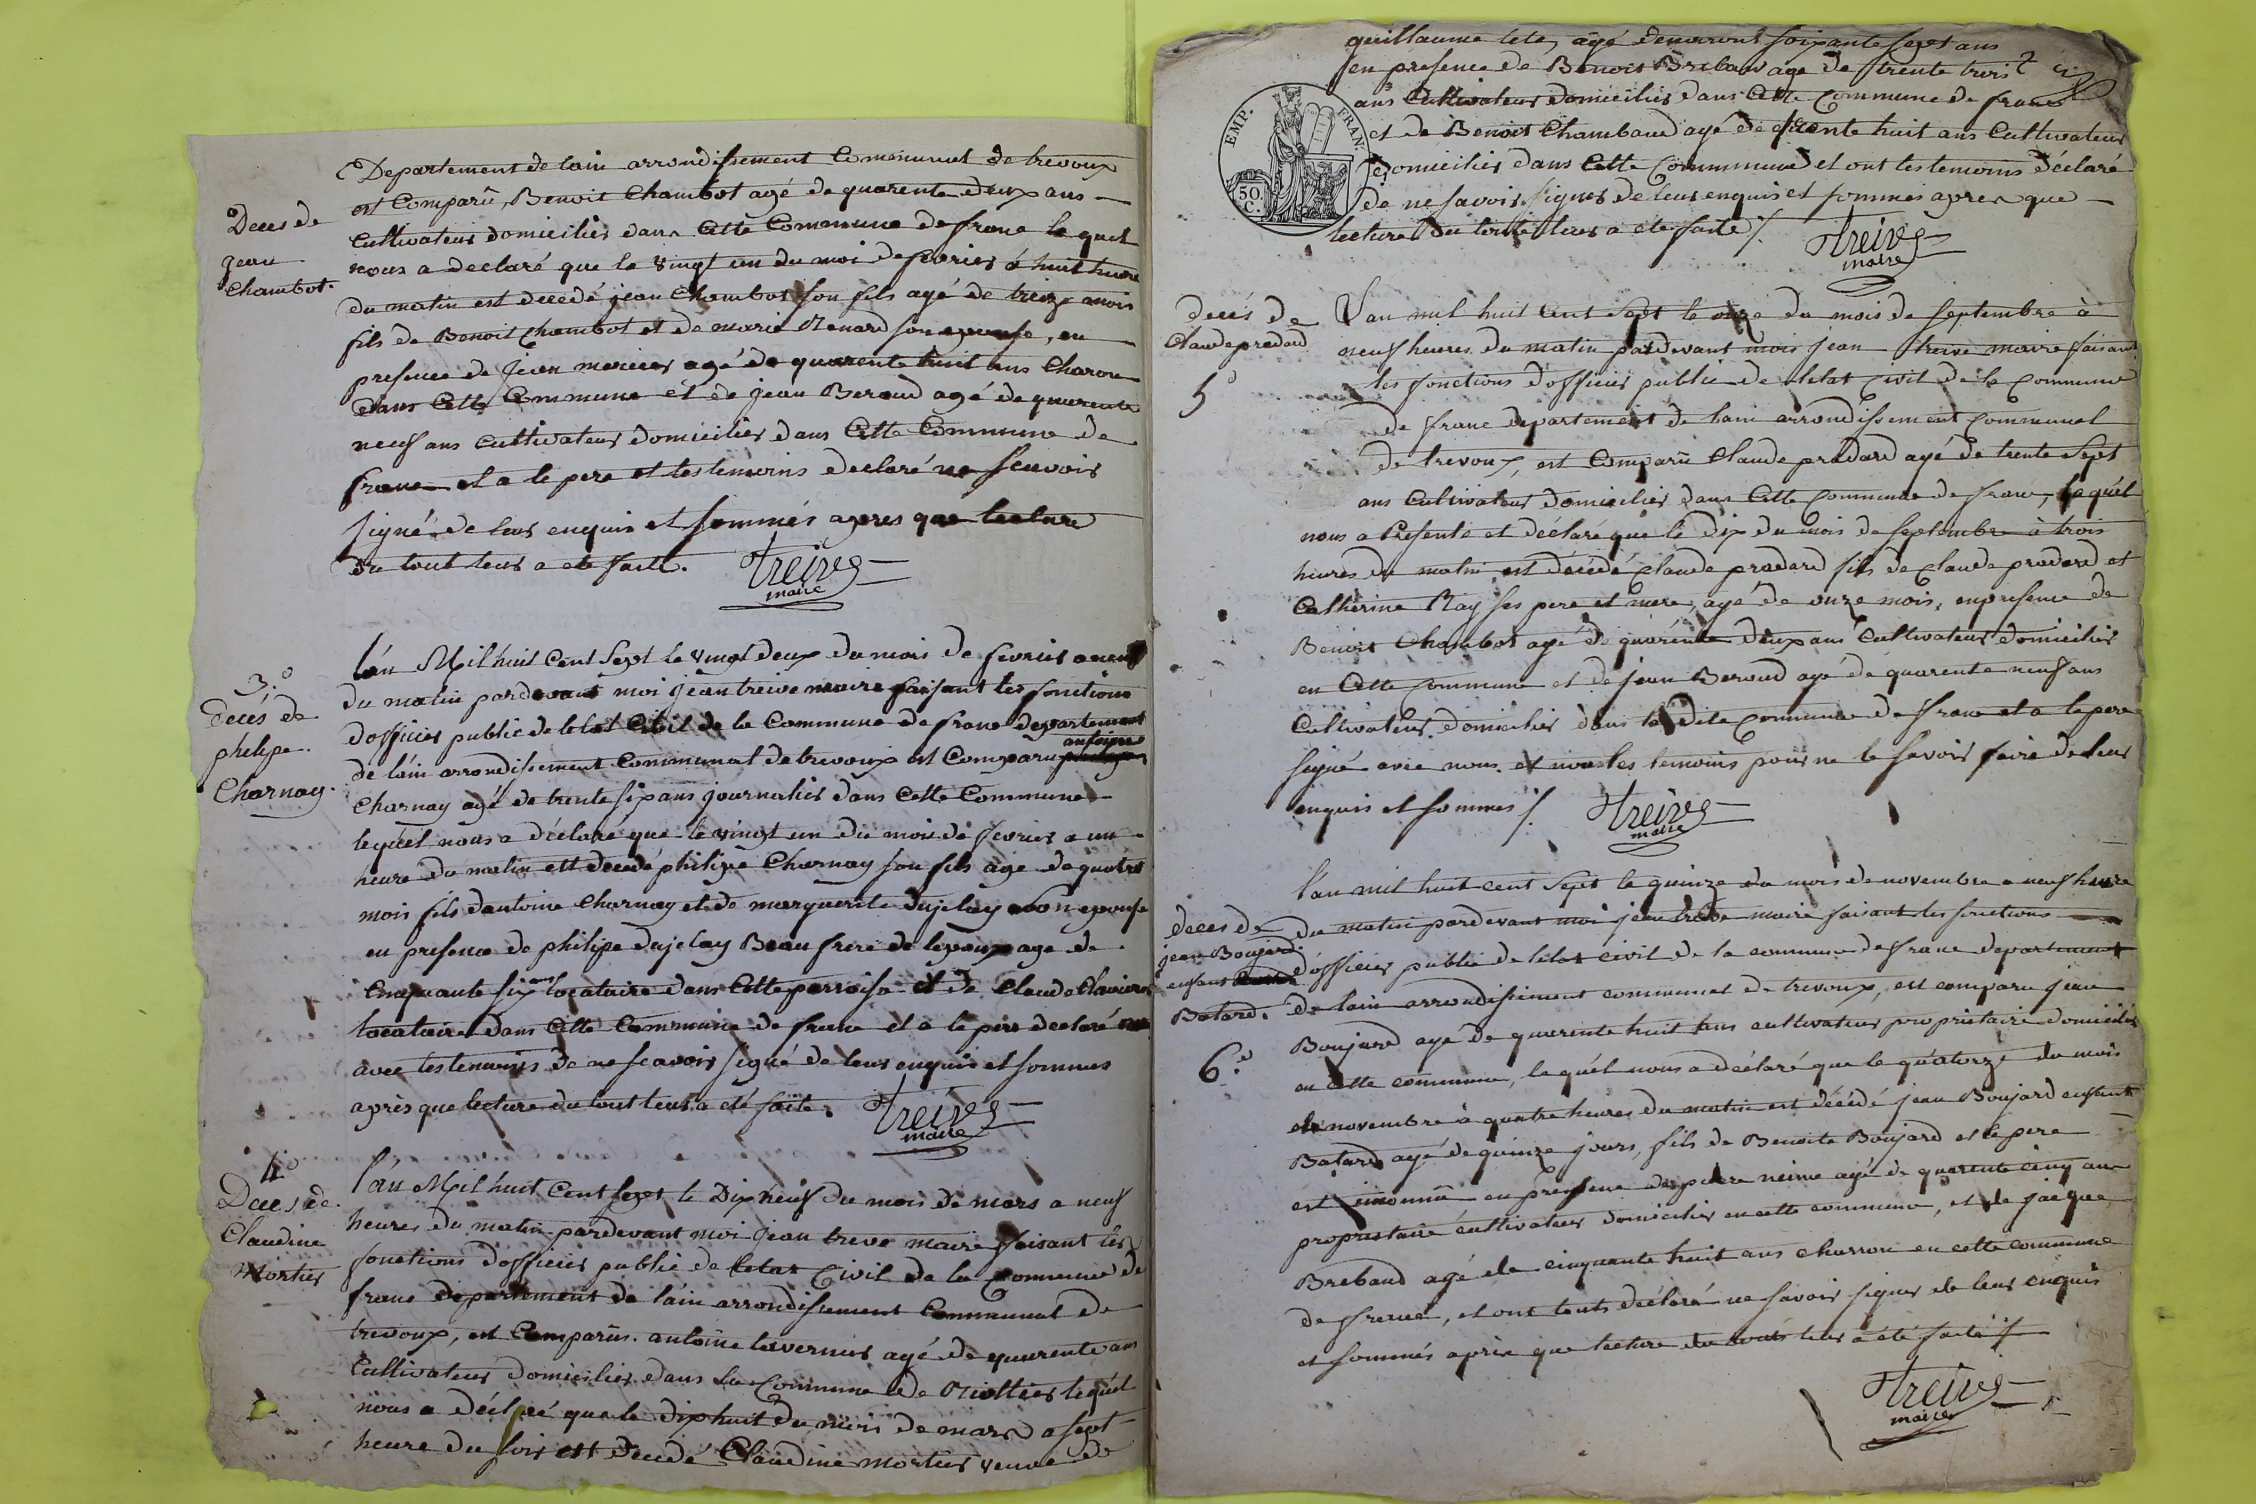 Departement de lain arrondissement Communal de trevoux
est Comparû, Benoit Chambot agé de quarente deux ans
Deces de
jean
Chambot.
Cultivateur domicilié dans Cette Commune de franc le quel
nous a declaré que le vingt un du moi de fevrier à huit heure
du matin est decedé jean Chambot son fils agé de treize mois
fils de Benoit Chambot et de marie Renard son epouse, en
presence de jean mercier agé de quarente huit ans Charon
dans Cette Commune et de jean Beroud agé de quarente
neuf ans cultivateur domicilier dans Cette Commune de
franc et a le pere et les temoins declaré ne scavoir
signé de leur enquis et sommés apres que lecture
du tout leur a eté faite.
Treive
maire
3.º
decés de
philipe
Charnay.
l'an Mil huit Cent Sept le vingt deux du mois de fevrier a neuf
du matin pardevant moi jean treive maire faisant les fonctions
dofficier public de letat Civil de la Commune de franc departement
antoine
de lain arrondissement Communal de trevoux est Comparu
Charnay agé de trente six ans journalier dans Cette Commune
lequel nous a déclaré que le vingt un du moi de fevrier a un
heure du matin est decedé philipe Charnay son fils age de quatre
mois fils dantoine Charnay et de marguerite dujelay son epouse
en presence de philipe dujelay Beau frere de lepoux age de
Cinquante six ans locataire dans Cette parroise et de Claude
locataire dans Cette Commune de franc et a le pere declaré
avec les temoins de ne scavoir signé de leur enquis et sommes
après que lecture du tout leur a eté faite.
Treive
maire
4º
Deces de
Claudine
Mortier
l'an Mil huit Cent Sept le Dix neuf du mois de mars a neuf
heures du matin pardevant moi jean treve maire faisant les
fonctions dofficier public de letat Civil de la Commune de
franc departement de lain arrondissement Communal de
trevoux, est Comparûs. antoine tavernier agé de quarente ans
Cultivateur domicilier dans La Commune de Riottier lequel
nous a déclaré que le dix huit du mois de mars a sept
heure du soir est decedé Claudine mortier veuve de
guillaume tete, agé denviront soixante sept ans
en presence de Benoit Brebau age de trente trois
ans Cultivateur domicilier dans Cette Commune de franc
et de Benoit Chambaud agé de trente huit ans Cultivateur
domicilier dans Cette Commune et ont les temoins déclaré
de ne savoir signer de leur enquis et sommés apres que
lecture Du tout leur a ete faite /.
EMP. FRAN.
50 C.
Treive
maire
decés de
Claude pradard
5º
L'an mil huit Cent Sept le onze du mois de septembre à
neuf heures du matin pardevant mois jean treive maire faisant
les fonctions d'officier public de letat Civil de la Commune
de franc departement de lain arrondissement Communal
de trevoux, est Comparû Claude pradard agé de trente Sept
ans Cultivateur domicilier dans Cette Commune de franc, lequel
nous a Presenté et déclaré que le dix du mois de septembre à trois
heures du matin est décédé Claude pradard fils de Claude pradard et
Catherine Ray ses pere et mere, agé de onze mois, en presence de
Benoit Chambot agé de quarente deux ans Cultivateur domicilier
en Cette Commune et de jean Beroud agé de quarente neuf ans
Cultivateur domicilier dans la dite Commune de franc et a le pere
signé avec nous et non les temoins pour ne le savoir faire de leur
enquis et sommes /.
Treive
maire
deces de
jean Boujard
enfant
Batard.
6º
l'an mil huit cent Sept le quinze du mois de novembre a neuf heure
du matin pardevant moi jean treve maire faisant les fonctions
d'officier public de letat civil de la commune de franc departement
de lain arrondissement communal de trevoux, est comparu jean
Boujard agé de quarente huit ans cultivateur propriétaire domicilié
en cette commune, lequél nous a déclaré que le quatorze du mois
de novembre à quatre heures du matin est décédé jean Boujard enfant
Batard agé de quinze jours, fils de Benoite Boujard et le pere
est inconnû en presence de pierre neime agé de quarente cinq ans
propriétaire cultivateur domicilier en cette commune, et de jacque
Brebaud agé de cinquante huit ans charron en cette commune
de franc, et ont touts déclaré ne savoir signer de leur enquis
et sommés après que lecture du tout leur a été faite /.
Treive
maire